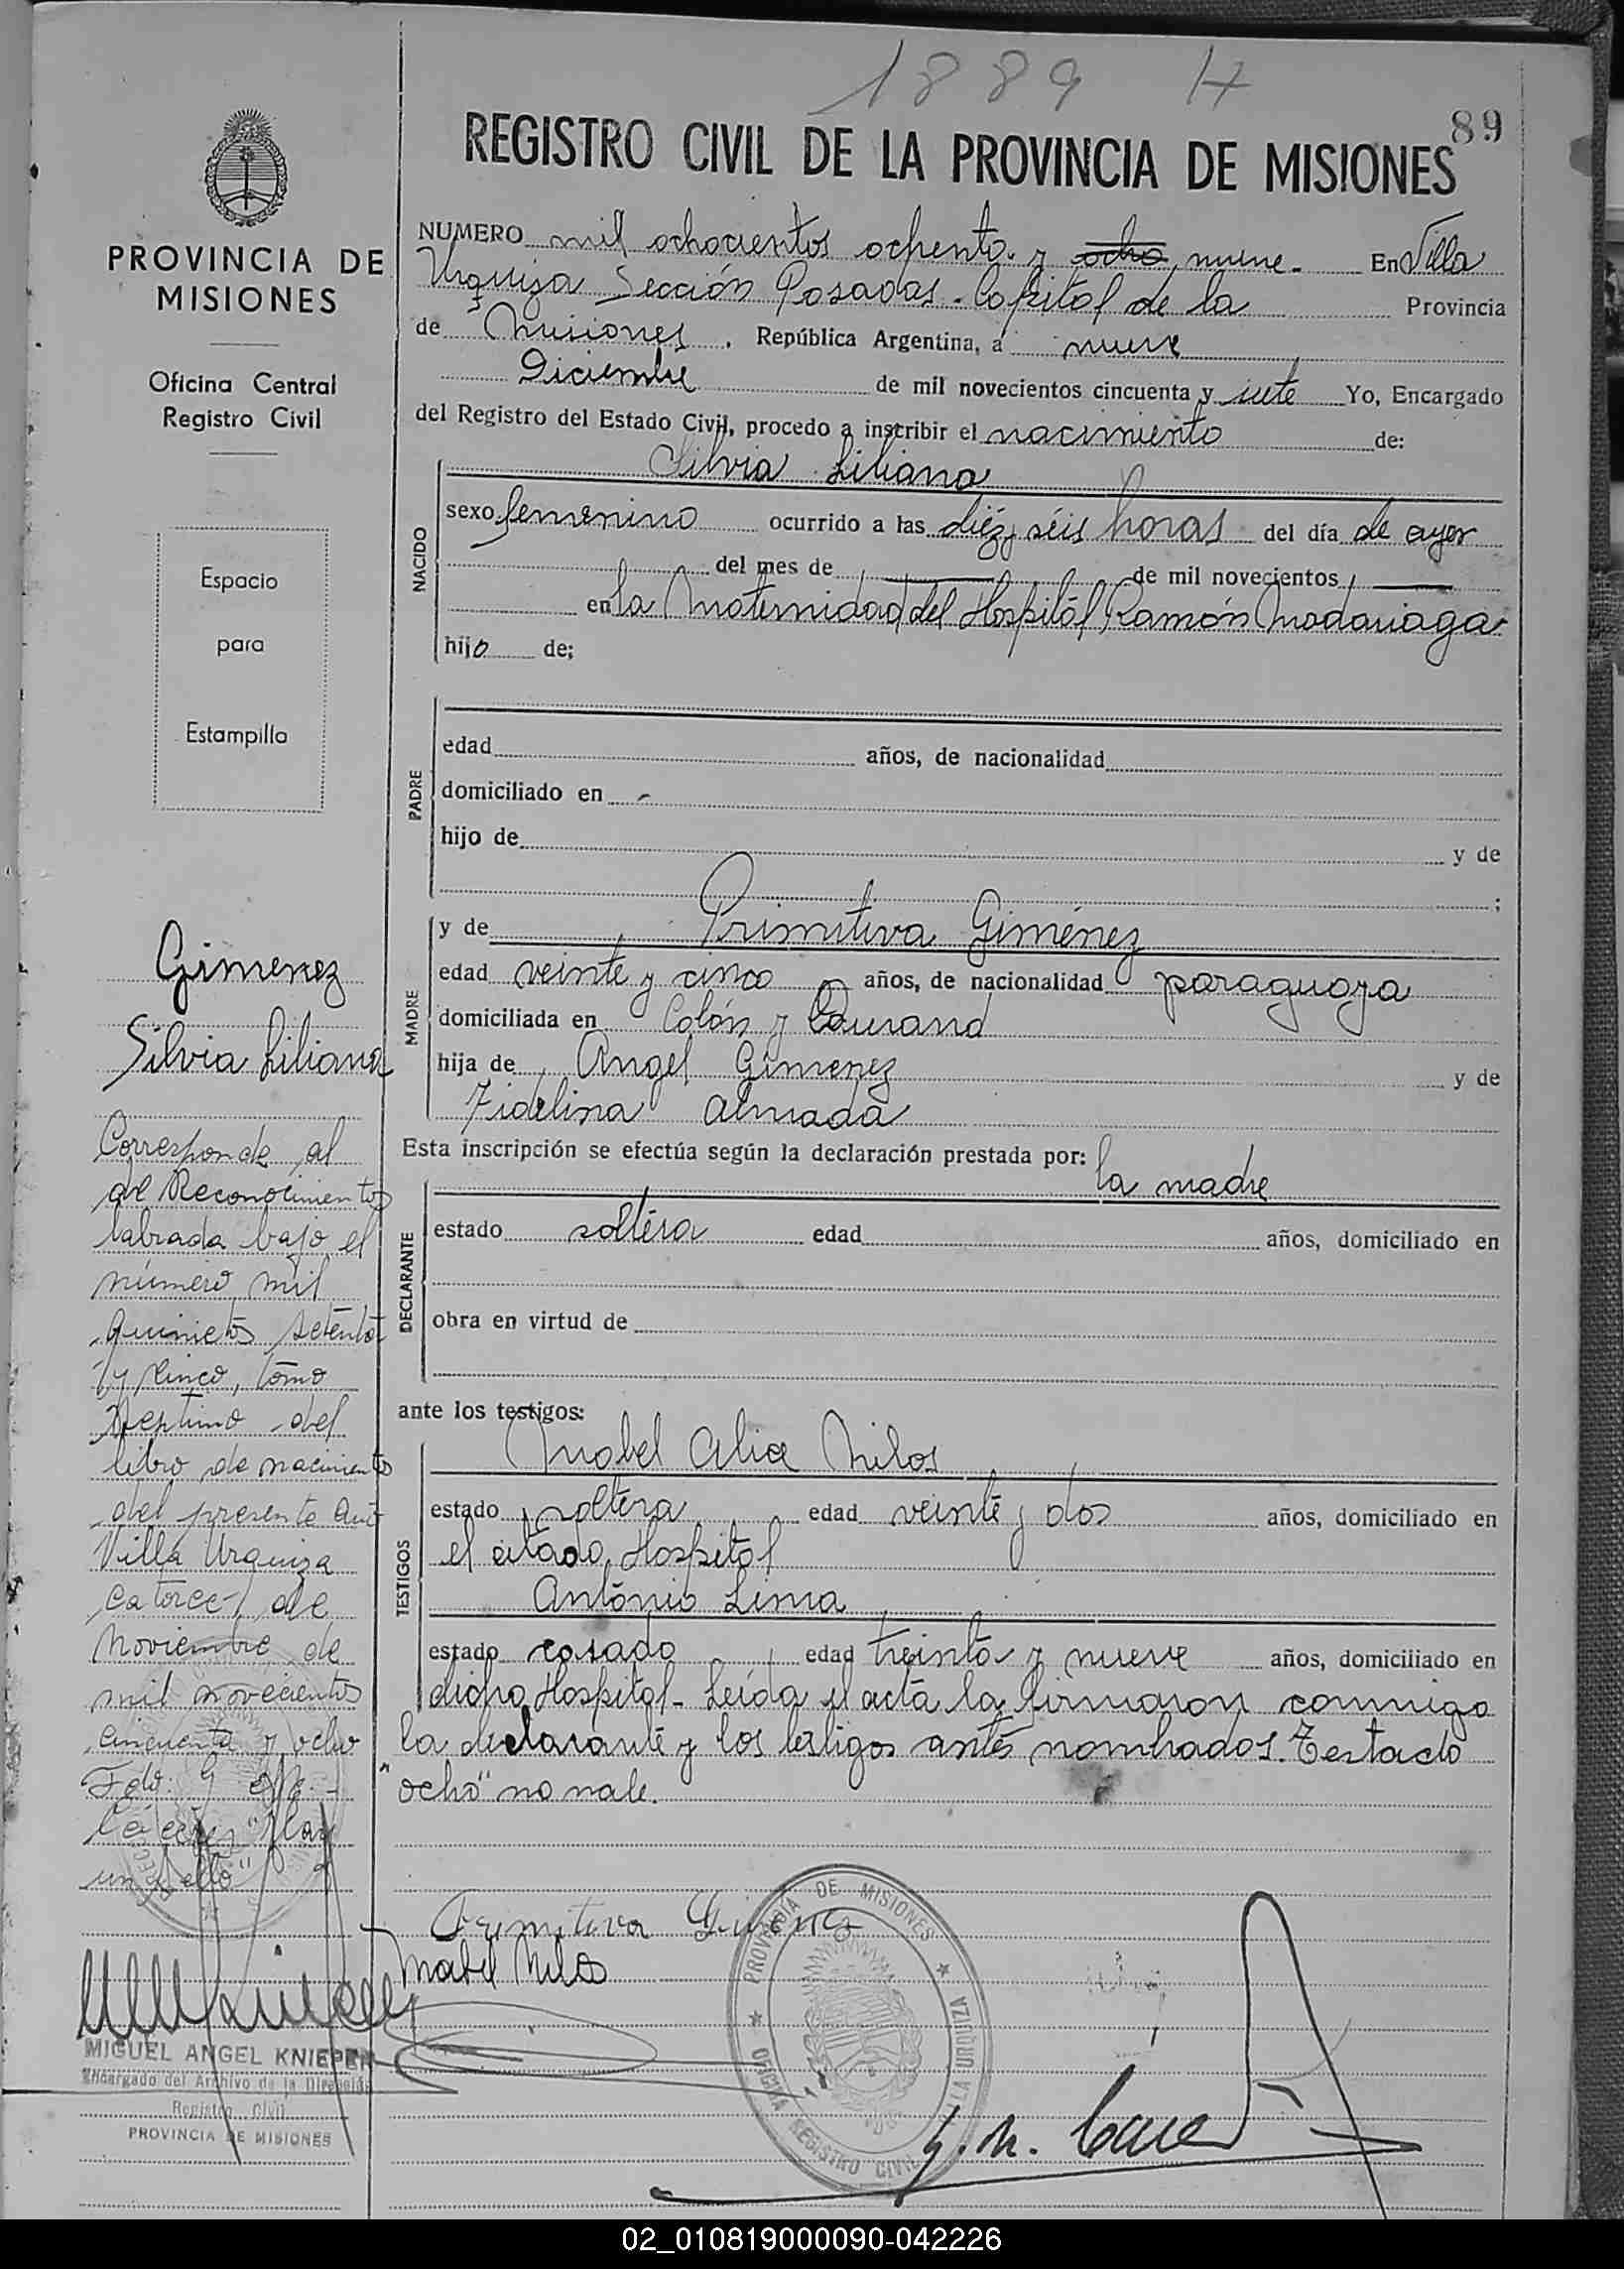 1889 H
89
REGISTRO CIVIL DE LA PROVINCIA DE MISIONES
PROVINCIA DE
MISIONES
Oficina Central
Registro Civil
Espacio
para
Estampilla
NUMERO mil ochocientos ochenta y ocho nueve. En Villa
Urquiza Sección Posadas - Capital de la Provincia
de Misiones, República Argentina, a nueve
Diciembre de mil novecientos cincuenta y siete Yo, Encargado
del Registro del Estado Civil, procedo a inscribir el nacimiento de:
NACIDO
Silvia Liliana
sexo femenino ocurrido a las diéz y séis horas del día de ayer
del mes de de mil novecientos
en la Maternidad del Hospital Ramón Madariaga
hijo de;
PADRE
edad años, de nacionalidad
domiciliado en -
hijo de y de
;
MADRE
y de Primitiva Giménez
edad veinte y cinco años, de nacionalidad paraguaya
domiciliada en Colón y
hija de Angel Gimenez y de
Fidelina Almada
Esta inscripción se efectúa según la declaración prestada por: la madre
DECLARANTE
estado soltera edad años, domiciliado en
obra en virtud de
ante los testigos:
TESTIGOS
Mabel Alice Milos
estado soltera edad veinte y dos años, domiciliado en
el citado Hospital
Antonio Lima
estado casado edad treinta y nueve años, domiciliado en
dicho Hospital - Leída el acta la firmaron conmigo
la declarante y los testigos antes nombrados. Testado
"ocho" no vale.
Gimenez
Silvia Liliana
Corresponde al
de Reconocimientos
labrada bajo el
número mil
quinietos setenta
y cinco, tomo
Septimo del
libro de nacimiento
del presente año
Villa Urquiza
catorce de
Noviembre de
mil novecientos
cincuenta y ocho
Fdo:
"Hay
un sello"
Primitiva Gimenez
Mabel Milos
PROVINCIA DE MISIONES
OFICINA REGISTRO CIVIL
VILLA URQUIZA
MIGUEL ANGEL KNIEPER
Encargado del Archivo de la Dirección
Registro Civil
PROVINCIA DE MISIONES
02_010819000090-042226